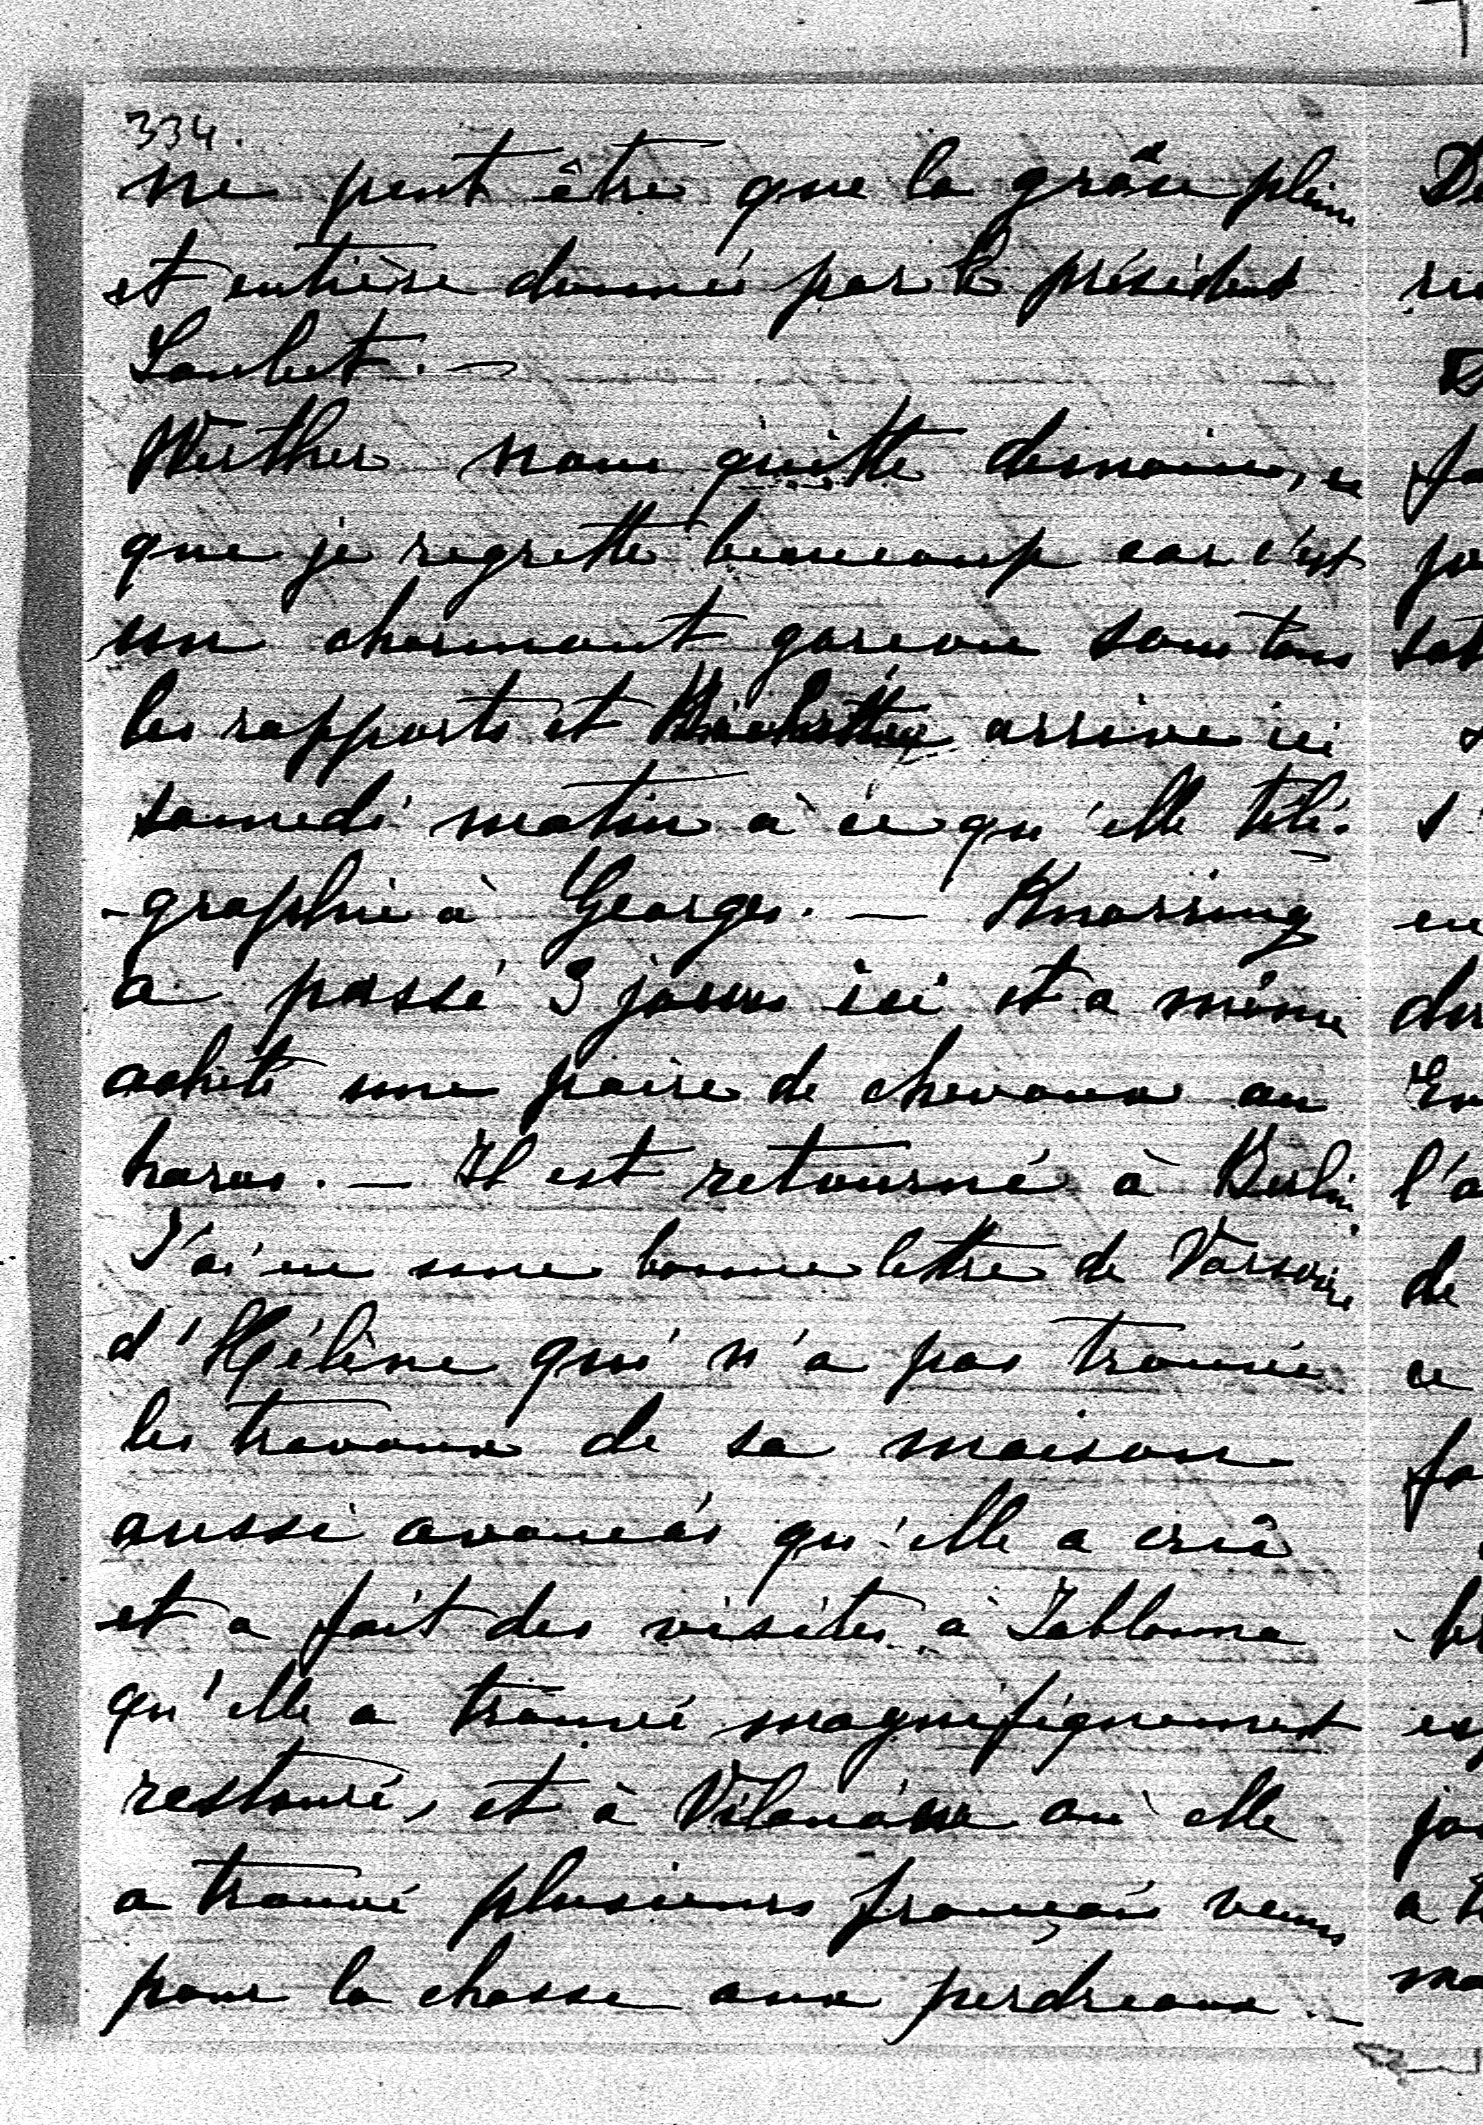 334.
ne peut être que la grâce pleine
et entière donnée par le président
Loubet. —
Werther nous quitte demain, ce
que je regrette beaucoup car c'est
un charmant garcon sous tous
les rapports et arrive ici
samedi matin à ce qu'elle télé-
-graphie à Georges. — Knorring
a passé 3 jours ici et a même
acheté une paire de chevaux au
haras. — Il est retourné à Berlin.
J'ai eu une bonne lettre de Varsovie
d'Hélène qui n'a pas trouvé
les travaux de sa maison
aussi avancés qu'elle a crû
et a fait des visites à Jablonna
qu'elle a trouvé magnifiquement
restauré, et à où elle
a trouvé plusieurs français venus
pour la chasse aux perdreaux. —